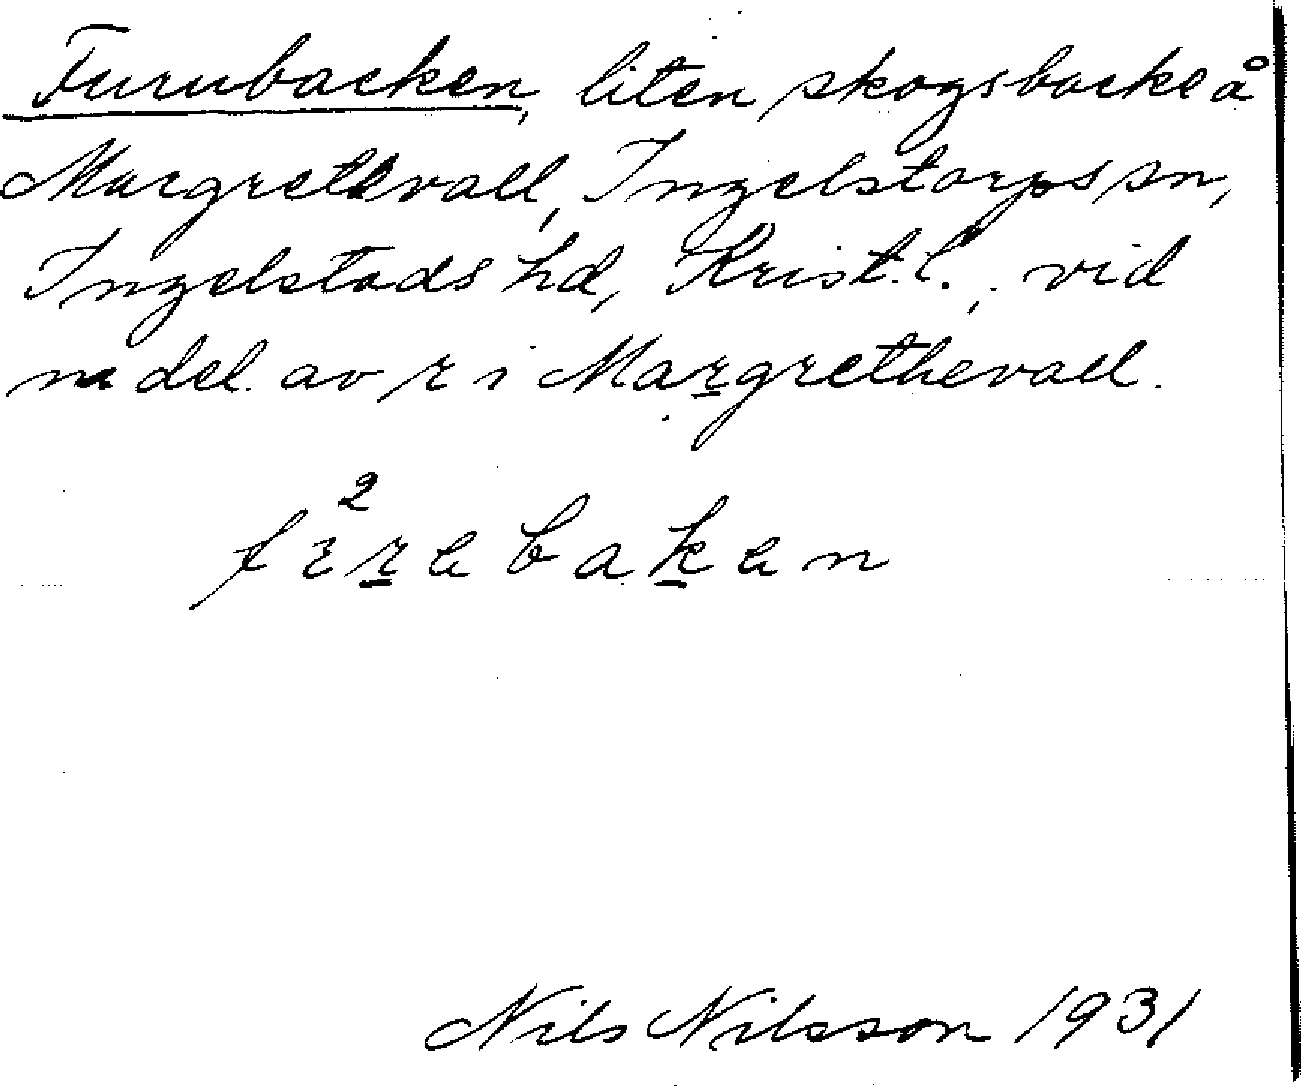 Furubacken, liten skogsbacke å
Margrethevall, Ingelstorps sn,
Ingelstads hd, Krist. l., vid
n del. av r i Margrethevall.
Nils Nilsson 1931